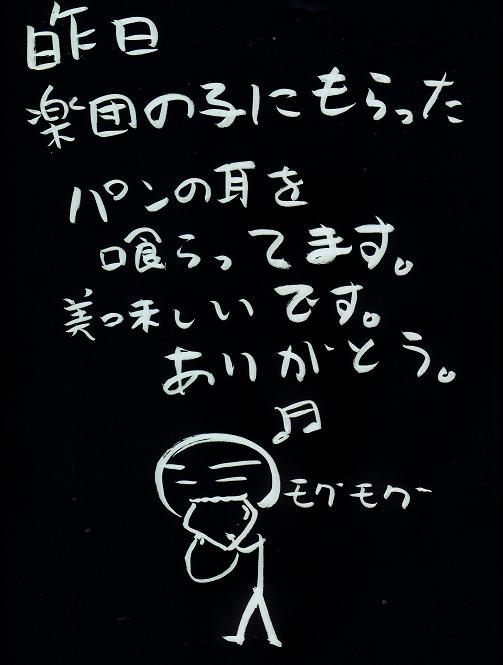 昨日
楽団の子にもらった
パンの耳を
喰らってます。
美味しいです。
ありがとう。
モグモグー